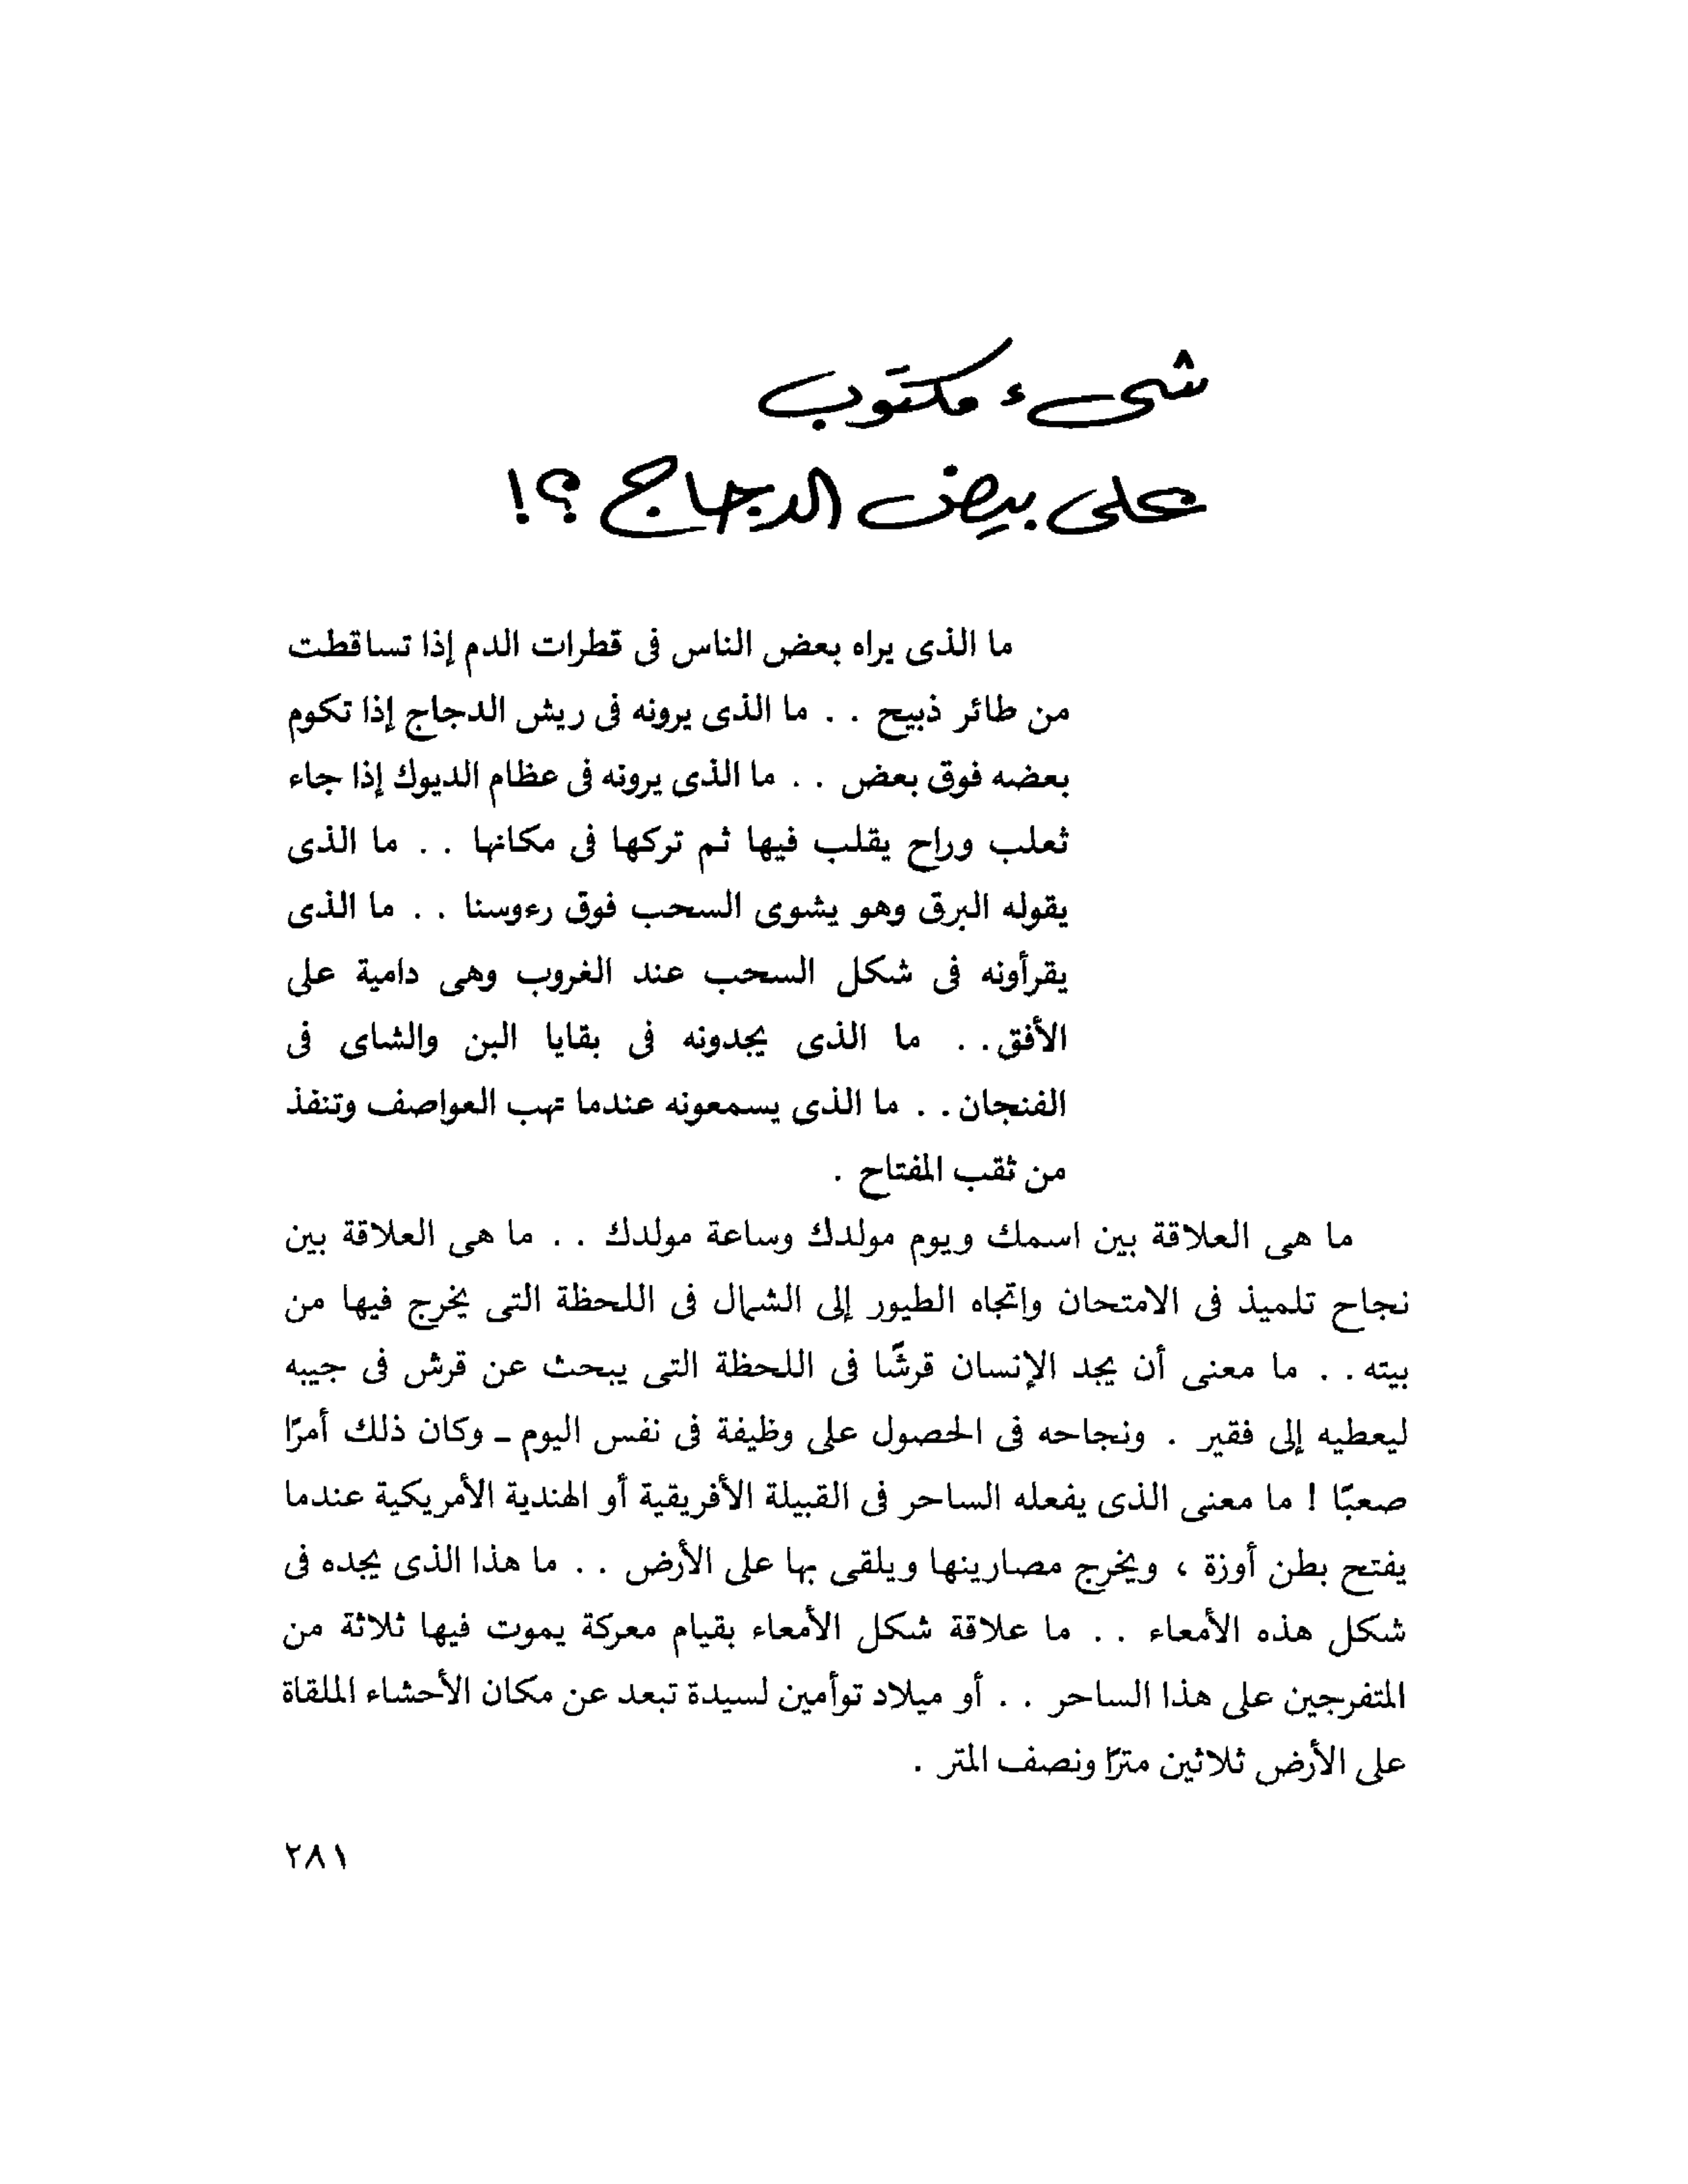 شىء مكتوب
على بيض الدجاج ؟!
ما الذى يراه بعض الناس فى قطرات الدم إذا تساقطت
من طائر ذبيح . . ما الذى يرونه فى ريش الدجاج إذا تكوم
بعضه فوق بعض . . ما الذى يرونه فى عظام الديوك إذا جاء
ثعلب وراح يقلب فيها ثم تركها فى مكانها . . ما الذى
يقوله البرق وهو يشوى السحب فوق رءوسنا . . ما الذى
يقرأونه فى شكل السحب عند الغروب وهى دامية على
الأفق . . ما الذى يجدونه فى بقايا البن والشاى فى
الفنجان . . ما الذى يسمعونه عندما تهب العواصف وتنفذ
من ثقب المفتاح .
ما هى العلاقة بين اسمك ويوم مولدك وساعة مولدك . . ما هى العلاقة بين
نجاح تلميذ فى الامتحان واتجاه الطيور إلى الشمال فى اللحظة التى يخرج فيها من
بيته . . ما معنى أن يجد الإنسان قرشًا فى اللحظة التى يبحث عن قرش فى جيبه
ليعطيه إلى فقير . ونجاحه فى الحصول على وظيفة فى نفس اليوم ــ وكان ذلك أمرًا
صعبًا ! ما معنى الذى يفعله الساحر فى القبيلة الأفريقية أو الهندية الأمريكية عندما
يفتح بطن أوزة ، ويخرج مصارينها ويلقى بها على الأرض . . ما هذا الذى يجده فى
شكل هذه الأمعاء . . ما علاقة شكل الأمعاء بقيام معركة يموت فيها ثلاثة من
المتفرجين على هذا الساحر . . أو ميلاد توأمين لسيدة تبعد عن مكان الأحشاء الملقاة
على الأرض ثلاثين مترًا ونصف المتر .
٢٨١